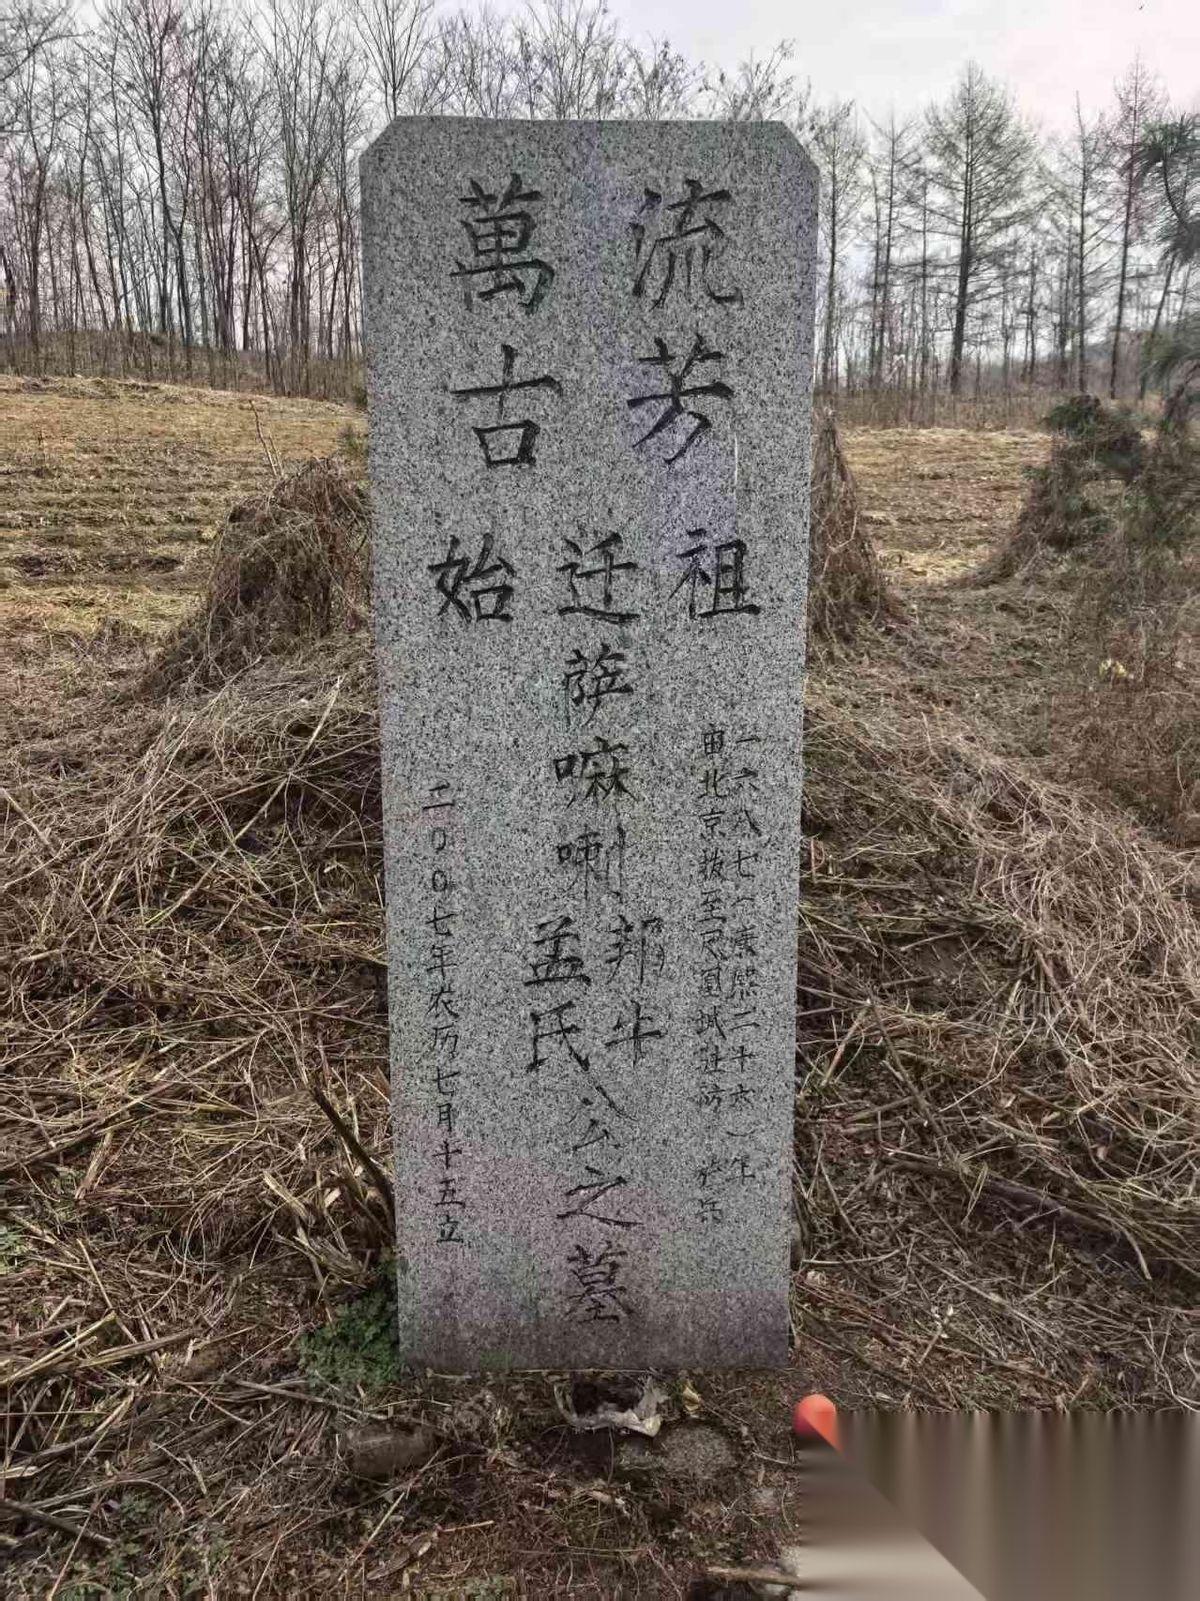 萬古
流芳
始迁祖
一六八七（康熙二十六）年
由北京拨至凤凰城驻防 兵
萨嘛喇
邦牛
孟氏
公之墓
二00七年农历七月十五立